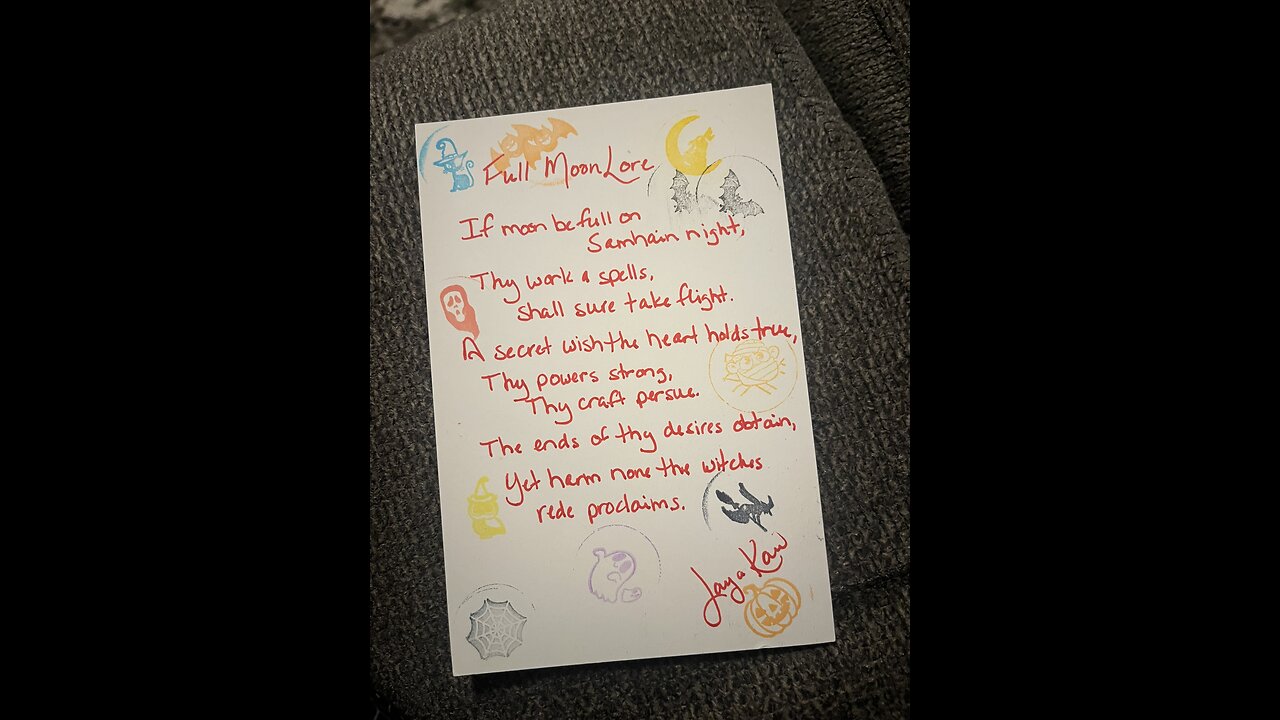 Full Moon Lore
If moon be full on
Samhain night,
Thy work & spells,
shall sure take flight.
A secret wish the heart holds true,
Thy powers strong,
Thy craft persue.
The ends of thy desires obtain,
Yet harm none the witches
rede proclaims.
Jaya Kaw